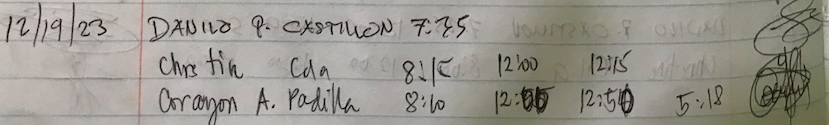 12/19/23 DANILO P. CASTILLON 7:35
Christin Cda 8:15 12:00 12:15
Corazon A. Padilla 8:10 12:05 12:50 5:18